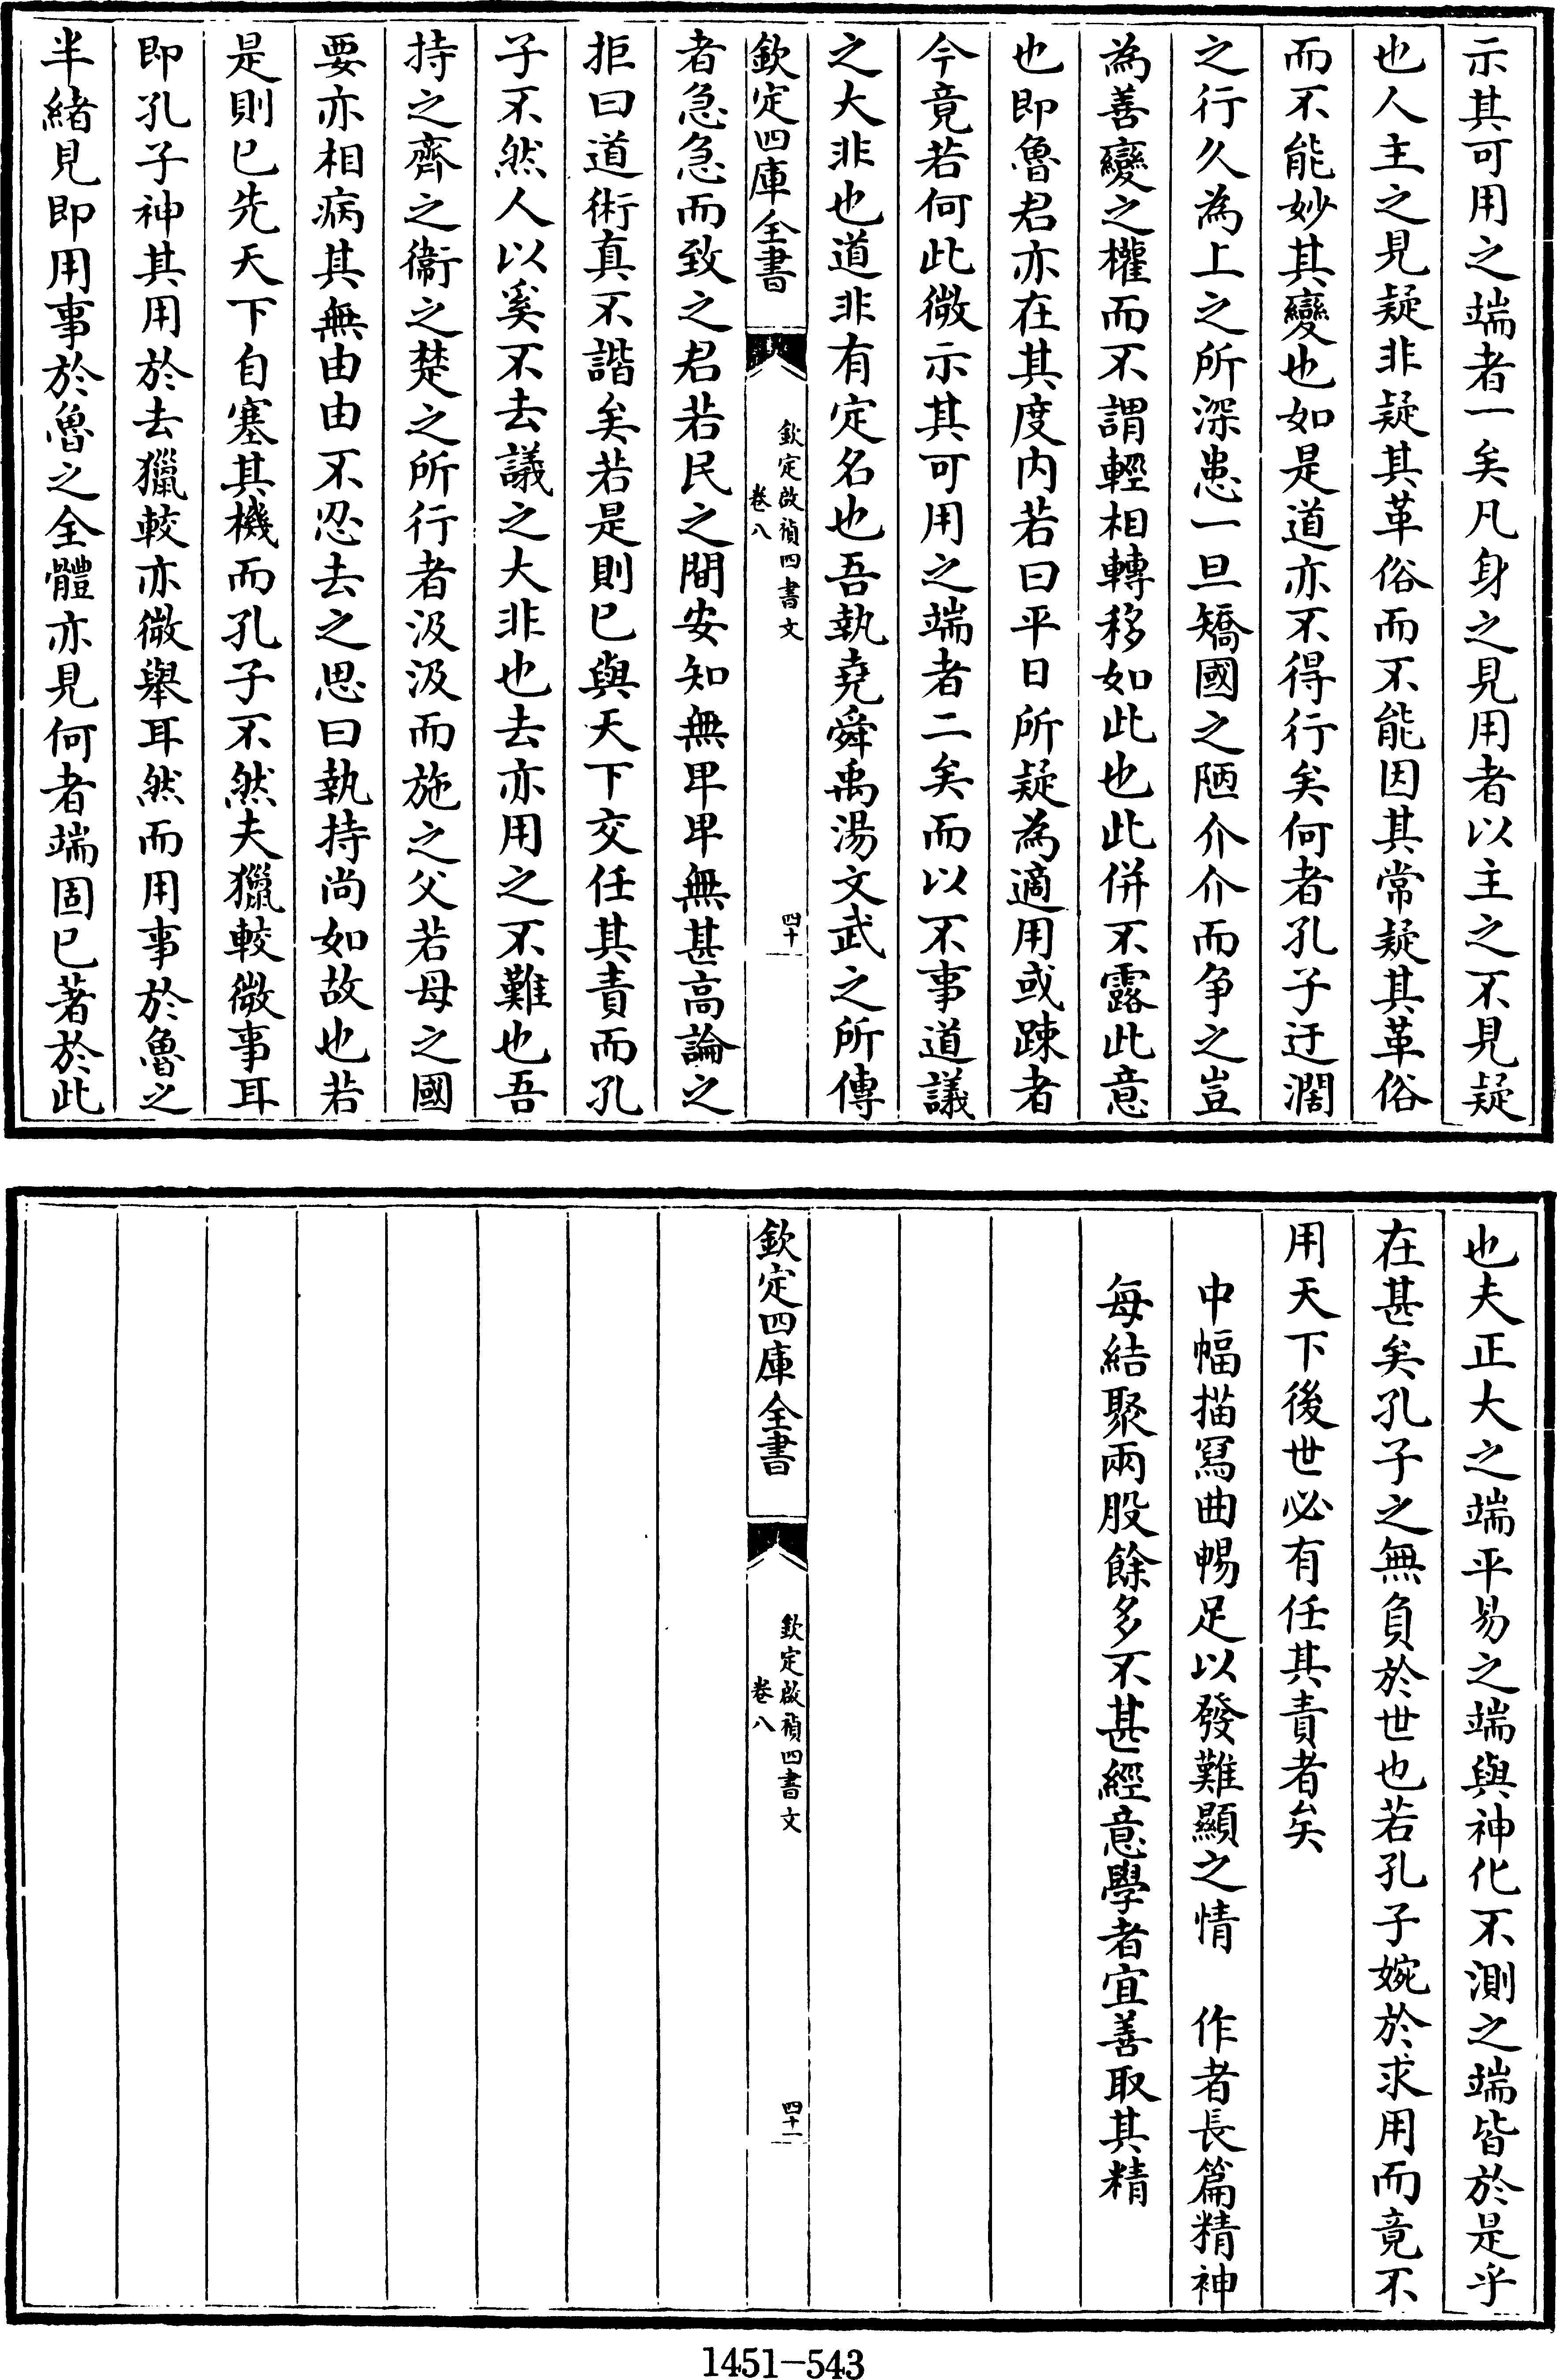 示其可用之端者一矣凡身之見用者以主之不見疑
也人主之見疑非疑其革俗而不能因其常疑其革俗
而不能妙其變也如是道亦不得行矣何者孔子迂濶
之行久為上之所深患一旦矯國之陋介介而争之豈
為善變之權而不謂輕相轉移如此也此併不露此意
也即魯君亦在其度内若曰平日所疑為適用或踈者
今竟若何此微示其可用之端者二矣而以不事道議
之大非也道非有定名也吾執堯舜禹湯文武之所傳
欽定四庫全書
欽定啟禎四書文
卷八
四十
者急急而致之君若民之間安知無卑卑無甚高論之
拒曰道術真不諧矣若是則已與天下交任其責而孔
子不然人以奚不去議之大非也去亦用之不難也吾
持之齊之衞之楚之所行者汲汲而施之父若母之國
要亦相病其無由由不忍去之思曰執持尚如故也若
是則已先天下自塞其機而孔子不然夫獵較微事耳
即孔子神其用於去獵較亦微舉耳然而用事於魯之
半緒見即用事於魯之全體亦見何者端固已著於此
也夫正大之端平易之端與神化不測之端皆於是乎
在甚矣孔子之無負於世也若孔子婉於求用而竟不
用天下後世必有任其責者矣
中幅描寫曲暢足以發難顯之情　作者長篇精神
每結聚兩股餘多不甚經意學者宜善取其精
欽定四庫全書
欽定啟禎四書文
卷八
四十一
1451-543